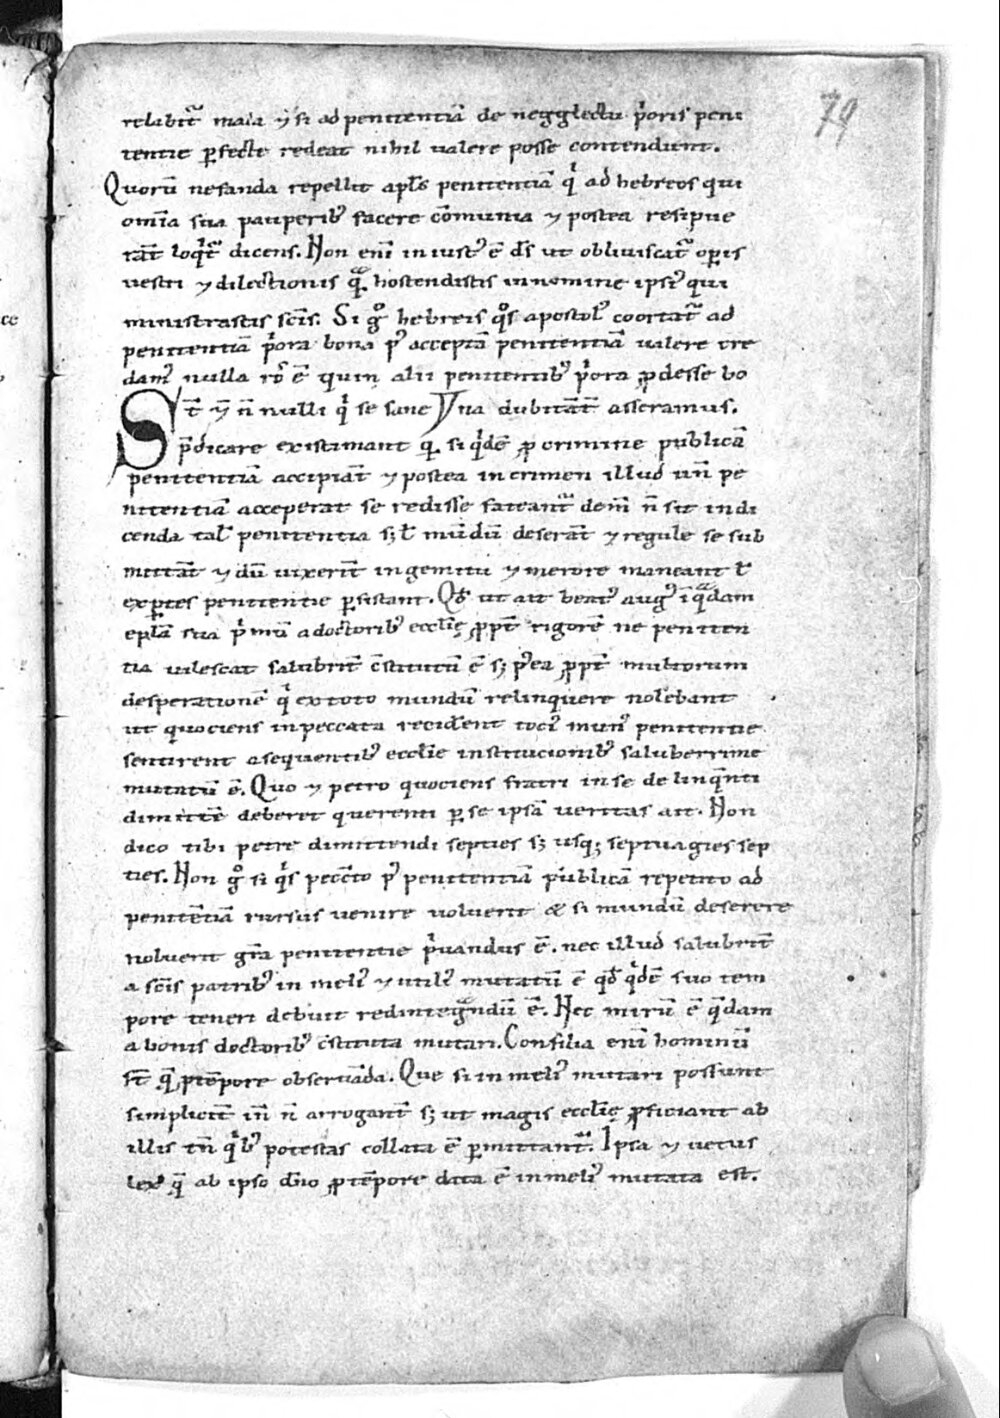 79
relabit᷑ mala ⁊ si ad penitentiā de negglectu p̍oris peni
tentie p̲fecte redeat nihil valere posse contendunt.
Quorū nefanda repellit apl̄s penitentiā q̍ ad hebreos qui
om̄ia sua pauperib᷒ facere cōmunia ⁊ postea resipue
rāt loq̍t᷑ dicens. Non enī iniust᷒ ē d̄s ut obliviscat᷑ op̲is
vestri ⁊ dilectionis quā hostendistis in nomine ipsi᷒ qui
ministrastis sc̄is. Si gͦ hebreis qͦs apostol᷒ coortat᷑ ad
penitentiā p̍ora bona p᷒ acceptā penitentiā valere cre
dam᷒ nulla rͦ ē quin alii penitentib᷒ p̍ora ꝓdesse bo
na dubitāt asseramus.
St̄ ⁊ n̄nulli q̍ se sane
p̄dicare existimant q̲ si q̍dē ꝓ crimine publicā
penitentiā accipiāt ⁊ postea in crimen illud un̄ pe
nitentiā acceperat se redisse fateant᷑ dem̄ n̄ sit indi
cenda tal᷒ penitentia sꝫ l̄ mūdū deserāt ⁊ regule se sub
mittāt ⁊ dū vixerīt in gemitu ⁊ merore maneant l̄
exp̲tes penitentie p̲sistant. Qd̄ ut ait beat᷒ aug᷒ ī quadam
epl̄a sua p̍mū a doctorib᷒ eccl̄ię ꝓpt̄ rigorē ne peniten
tia vilescat salubrit̄ c̄stitutū ē sꝫ p᷒ea ꝓpt̄ multorum
desperationē q̍ ex toto mundū relinquere nolebant
ut quociens in peccata recider̄ent toci᷒ mun᷒ penitentie
sentirent a sequentib᷒ eccl̄ie institucionib᷒ saluberrime
mutatū ē. Quo ⁊ petro quociens fratri in se delinq̄nti
dimittē deberet querenti p̲ se ipsā veritas ait. Non
dico tibi petre dimittendi septies sꝫ usq; septuagies sep
ties. Non gͦ si q̍s pecc̄to p᷒ penitentiā publicā repetito ad
penitētiā rursus venire voluerit & si mundū deserere
noluerit gr̄a penitentie p̍vandus ē. nec illud salubrit̄
a sc̄is patrib᷒ in meli᷒ ⁊ utili᷒ mutatū ē qd̄ q̍dē suo tem
pore teneri debuit redintegrandū ē. Nec mirū ē quedam
a bonis doctorib᷒ c̄stituta mutari. Consilia enī hominū
st̄ q̄ ꝓ tēpore observāda. Que si in meli᷒ mutari possunt
simplicit̄ in̄ n̄ arrogant̄ sꝫ ut magis eccl̄ię ꝓficiant ab
illis tn̄ q̍b᷒ potestas collata ē p̲mittant᷑. Ipsa ⁊ vetus
lex q̄ ab ipso dn̄o ꝓ tēpore data ē in meli᷒ mutata est.